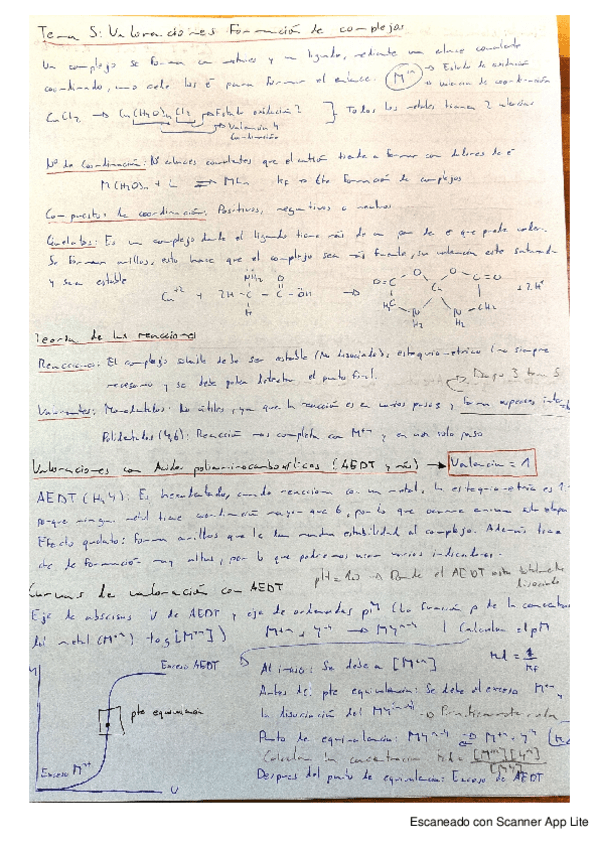 Tema 5: Valoraciones Formación de complejos
Un complejo se forma con metales y un ligando, mediante un enlace covalente
coordinado, uno cede los é para formar el enlace. M⁺ⁿ → Estado de oxidación
→ valencia de coordinación
CuCl2 → Cu(H2O)4Cl2 → Estado oxidación 2 } Todos los metales tienen 2 valencias
→ Valencia 4
Coordinación
Nº de Coordinación: Nº enlaces covalentes que el catión tiende a formar con dadores de é
M(H2O)n + L ⇌ MLn Kf → Cte Formación de complejos
Compuestos de coordinación: Positivos, negativos o neutros
Quelatos: Es un complejo donde el ligando tiene más de un par de é que puede ceder.
Se forman anillos, esto hace que el complejo sea más fuerte, su valencia este saturada
y sea estable
Cu⁺² + 2H - C - C - OH → + 2H⁺
NH2 O H
O=C O O C=O
Cu
H2C N N CH2
H2 H2
Teoría de las reacciones
Reacciones: El complejo soluble debe ser estable (No disociado), estequiométrico (no siempre
necesario y se debe poder detectar el punto final.
→ Diapo 3 tem 5
Valorantes: Monodentados: No útiles, ya que la reacción es en varios pasos y forma especies
Polidentados (4,6): Reacción mas completa con M⁺ⁿ y en un solo paso
Valoraciones con Ácidos poliaminocarboxílicos (AEDT y más) → Valencia = 1
AEDT (H4Y): Es hexadentado, cuando reacciona con un metal, la estequiometría es 1:
porque ningún metal tiene coordinación mayor que 6, por lo que ocurre en una etapa
Efecto quelato: Forman anillos que le dan mucha estabilidad al complejo. Además tiene
cte de formación muy altas, por lo que podremos usar varios indicadores.
pH = 10 → Donde el AEDT esta totalmente
disociado
Curvas de valoración con AEDT
Eje de abscisas V de AEDT y eje de ordenadas pM (La función p de la
del metal (Mⁿ⁺) log [Mⁿ⁺]) Mⁿ⁺ + Y⁴⁻ → MYⁿ⁻⁴ Calcular el pM
Kd = 1/Kf
Exceso AEDT
pto equivalencia
Exceso Mⁿ⁺
V
Al inicio: Se debe a [Mⁿ⁺]
Antes del pto equivalencia: Se debe al exceso Mⁿ⁺
la disociación del MYⁿ⁻⁴ → Prácticamente nula
Punto de equivalencia: MYⁿ⁻⁴ ⇌ Mⁿ⁺ Y⁴⁻
Calcular la concentración Kd = [Mⁿ⁺][Y⁴⁻]
Despues del punto de equivalencia: Exceso de AEDT
Escaneado con Scanner App Lite